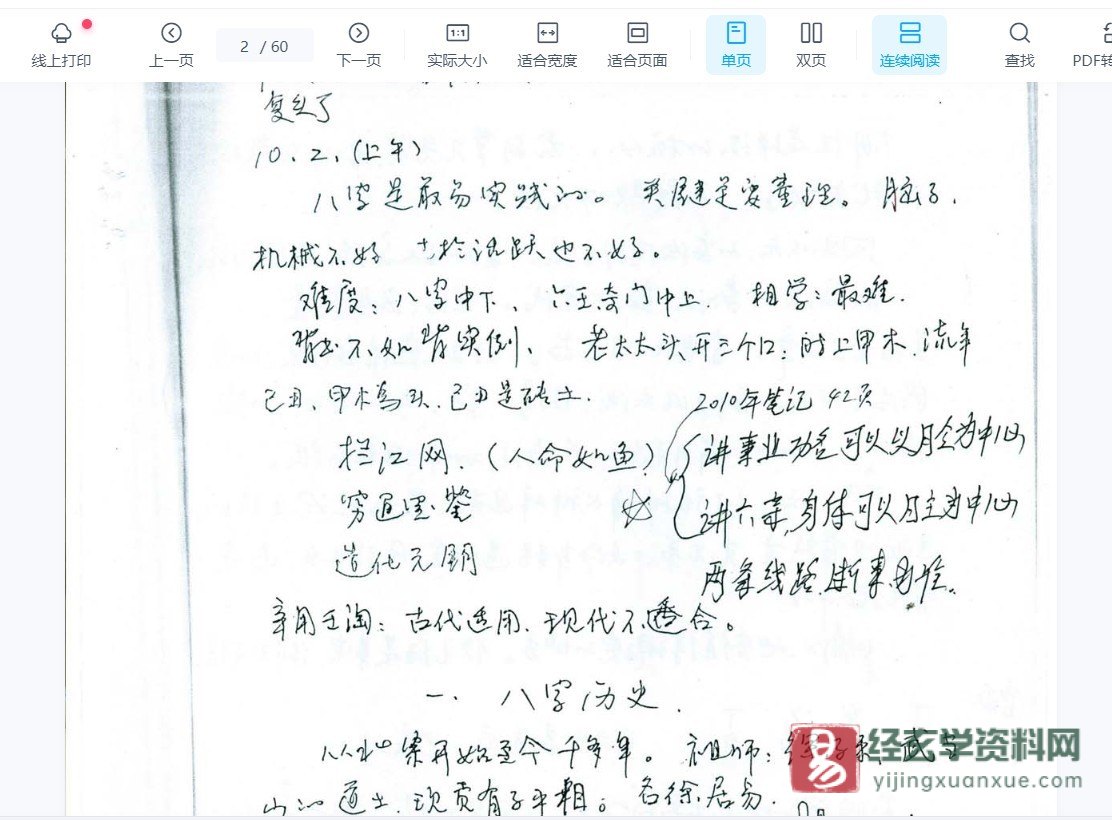 线上打印
上一页
2 / 60
下一页
1:1
实际大小
适合宽度
适合页面
单页
双页
连续阅读
查找
PDF转
复头了
10.2.(上午)
八字是最易实践的。关键是要整理。脑子,
机械不好 太于活跃也不好。
难度:八字中下、六壬奇门中上、相学:最难.
背书不如背实例、老太太头开三个口:时上甲木.流年
己丑、甲木为头.己丑是砖土.
2010年笔记 42页
拦江网.(人命如鱼)
讲事业功名可以以月令为中心
穷通宝鉴
讲六亲,身体可以日主为中心
造化元钥
两条线路.断事
辛用壬淘:古代适用.现代不适合。
一. 八字历史.
从 开始至今千多年。祖师:徐子平,武当
山 道士.现 有子平相。名徐居易.
易
经玄学资料网
yijingxuanxue.com